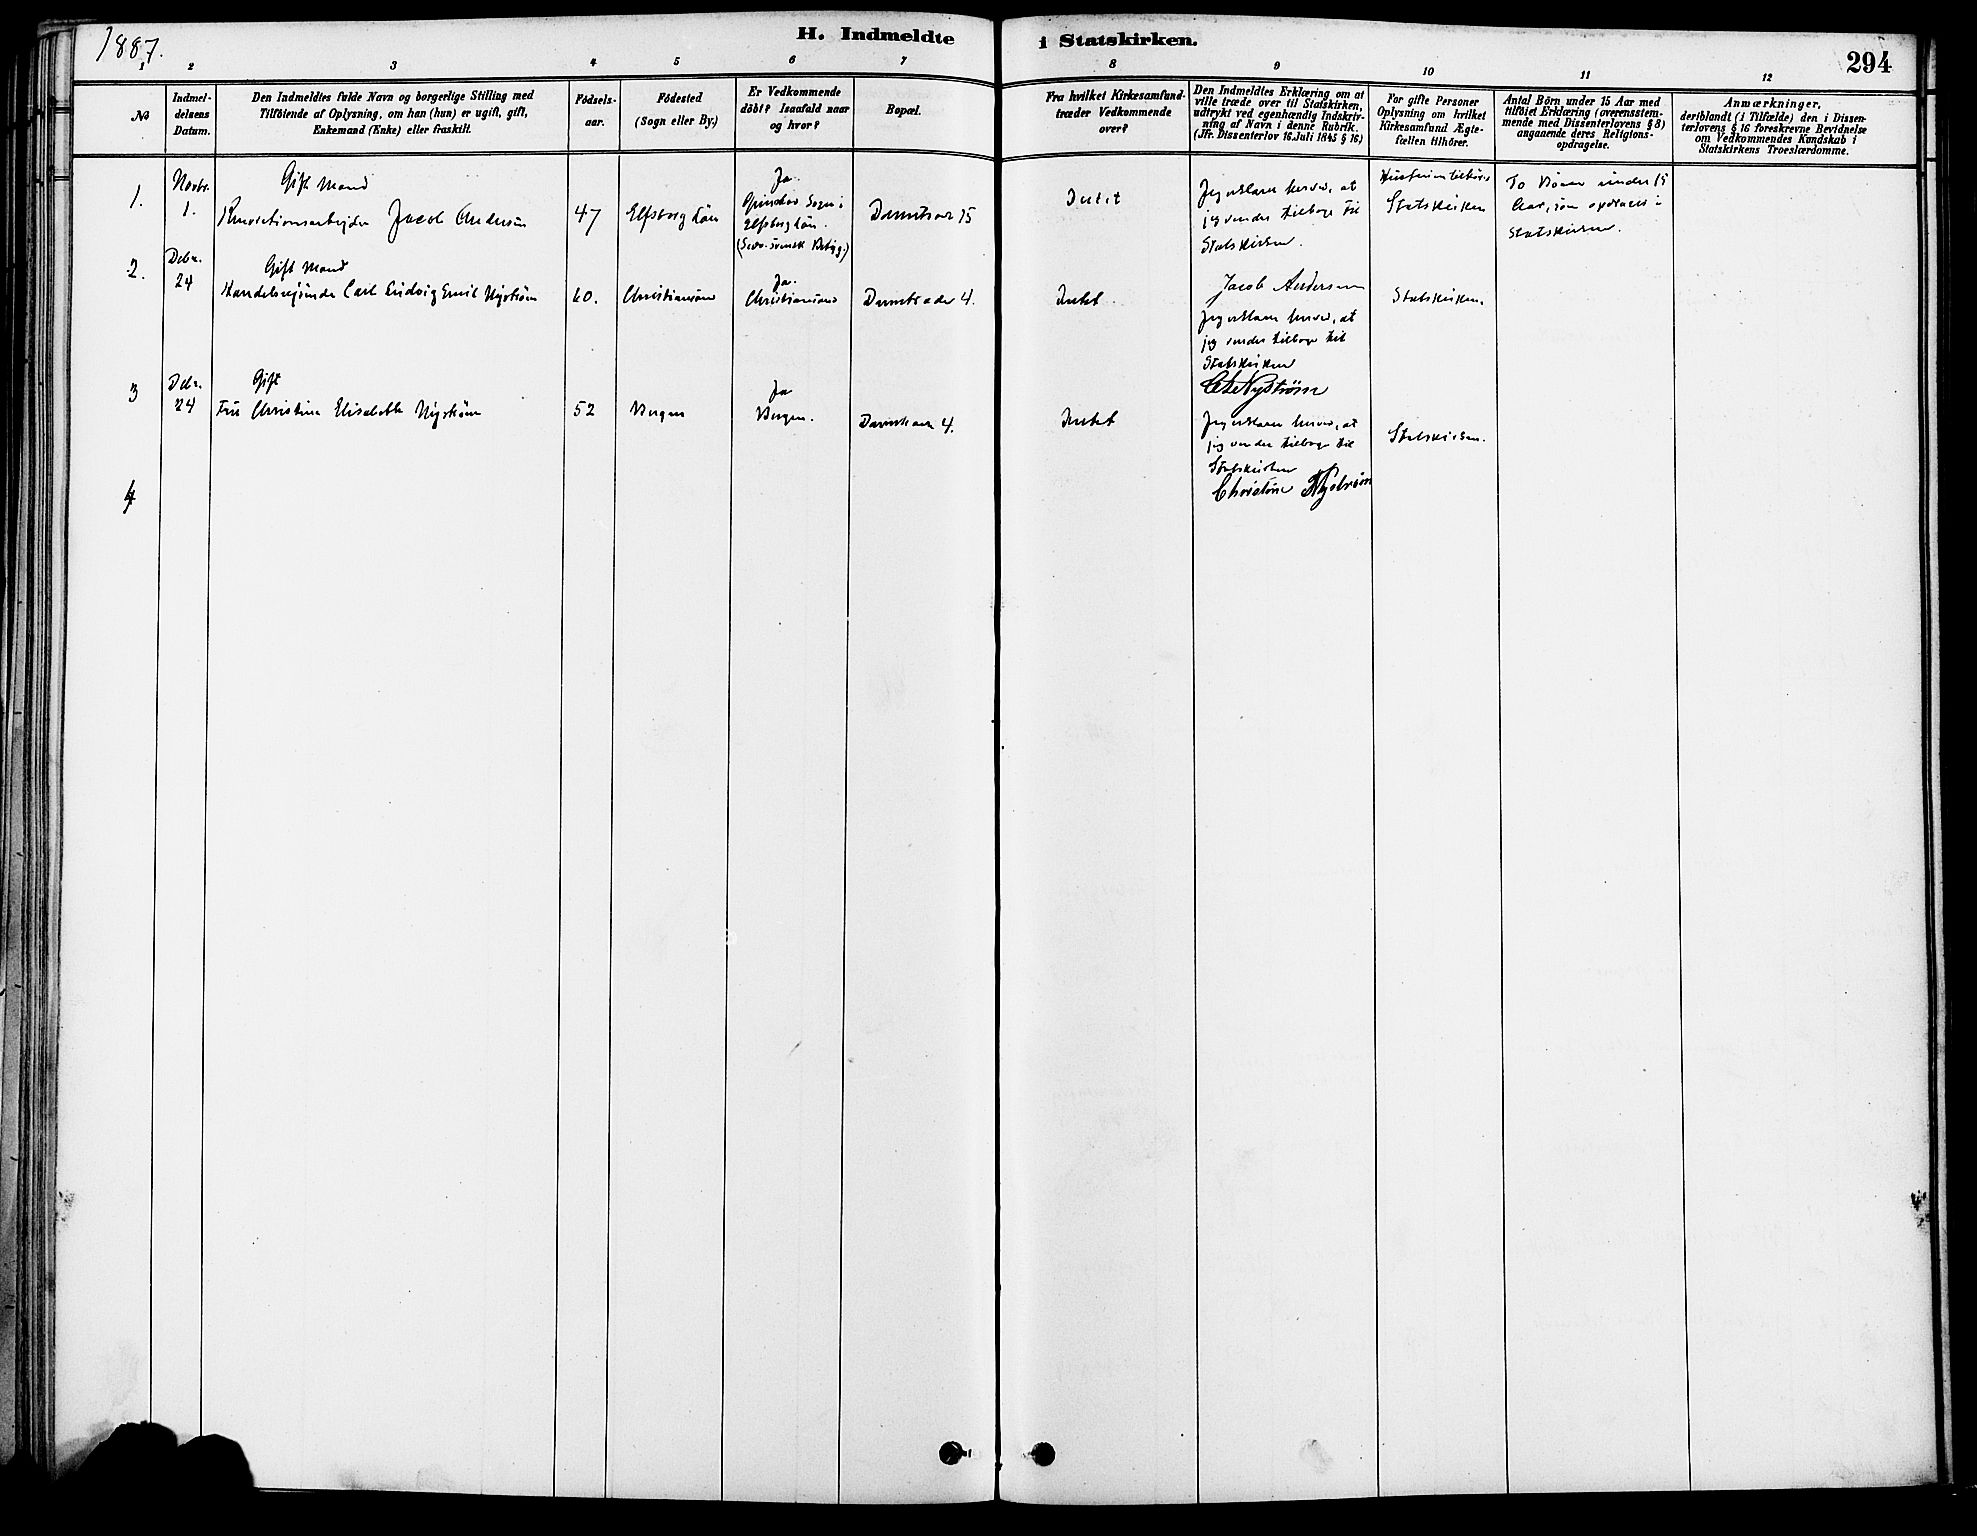 1887.
H. Indmeldte i Statskirken.
294
1 2 3 4 5 6 7 8 9 10 11 12
No
Indmel-
delsens
Datum.
Den Indmeldtes fulde Navn og borgerlige Stilling med
Tilföiende af Oplysning, om han (hun) er ugift, gift,
Enkemand (Enke) eller fraskilt.
Födsels-
aar.
Födested
(Sogn eller By.)
Er Vedkommende
döbt? Isaafald naar
og hvor?
Bopæl.
Fra hvilket Kirkesamfund
træder Vedkommende
over?
Den Indmeldtes Erklæring om at
ville træde over til Statskirken,
udtrykt ved egenhændig Indskriv-
ning af Navn i denne Rubrik.
(Jfr. Dissenterlov 16. Juli 1845 § 16)
For gifte Personer
Oplysning om hvilket
Kirkesamfund Ægte-
fællen tilhörer.
Antal Börn under 15 Aar med
tilföiet Erklæring (overensstem-
mende med Dissenterlovens § 8)
angaaende deres Religions-
opdragelse.
Anmærkninger,
deriblandt (i Tilfælde) den i Dissen-
terlovens § 16 foreskrevne Bevidnelse
om Vedkommendes Kundskab i
Statskirkens Troeslærdomme.
1.
Novbr.
1.
Gift Mand
Renovationsarbejder Jacob Andersen
47
Elfsborg Län
Ja.
Sogn i
Elfsborg Län.
(Sev. svensk Betyg.)
15
Intet
Jeg erklærer herved, at
jeg vender tilbage til
Statskirken.
Jacob Andersen
Hustruen tilhører
Statskirken
To Børn under 15
Aar, som opdrages i
Statskirken.
2.
Debr.
24
Gift Mand
Carl Ludvig Emil Nyström
60.
Christiansand
Ja.
Christiansand
4.
Intet
Jeg erklærer herved, at
jeg vender tilbage til
Statskirken
Nyström
Statskirken.
3
Debr.
24
Gift
Fru Christine Elisabeth Nyström
52
Bergen
Ja
Bergen.
4.
Intet
Jeg erklærer herved, at
jeg vender tilbage til
Statskirken
Christine Nyström
Statskirken.
4